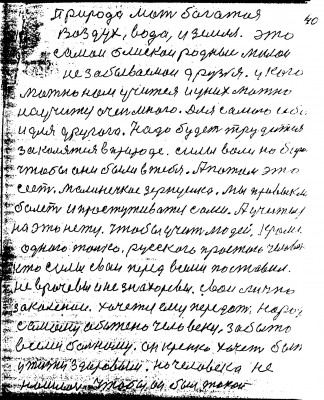 40
Природа мать богатая
воздух, вода, и земля. это
самаи близкои родныи милои
незабываемаи друзья. у кого
можно нам учится и у них можно
научится очен много. Для самого себя
и для другого. Надо будет трудится
закалятся в природе. силы воли набера
чтобы они были в тебя. А потом это
есть. маленичкае зернушка. Мы привыкли
болеть и простуживатся сами. А учитил
на это нету. чтобы учит людей, кроме
одного только, русского простого человек
кто силы свои перед всеми поставил.
не врачевы и не знахоревы. свои лично
закалении. хочет ему передать. народ
самому обижено человеку. забыто
всеми больному. он крепко хочет быть
у жизни здоровым. но человека не
нашлос чтобы он был такои